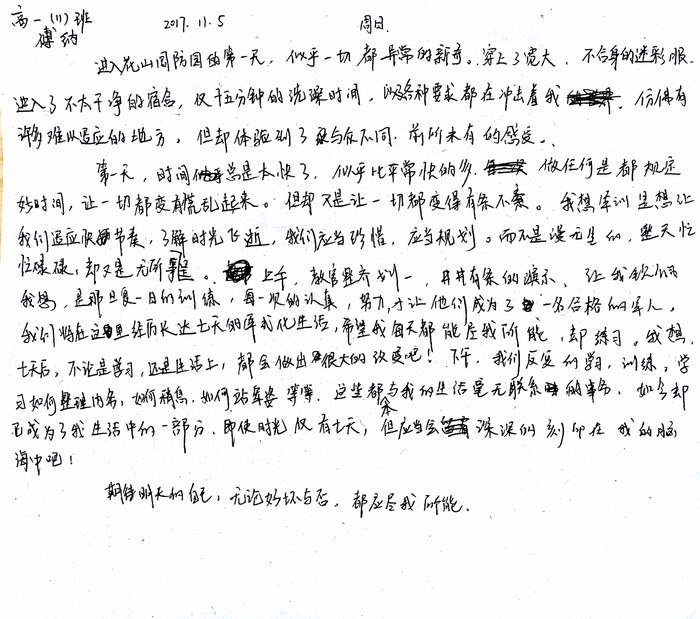 高一(11)班 2017.11.5 周日
傅纳
进入花山国防园的第一天，似乎一切都异常的新奇。穿上了宽大、不合身的迷彩服，
进入了不大干净的宿舍，仅十五分钟的洗澡时间，以及各种要求都在冲击着我，仿佛有
许多难以适应的地方，但却体验到了与众不同、前所未有的感受。
第一天，时间总是太快了，似乎比平常快的多，做任何是都规定
好时间，让一切都变有慌乱起来。但却又是让一切都变得有条不紊。我想军训是想让
我们适应快节奏，了解时光飞逝，我们应当珍惜，应当规划。而不是漫无目的，整天忙
忙碌碌，却又是无所。上午，教官整齐划一，井井有条的演示，让我钦佩
我想，是那日复一日的训练，每一次的认真，努力，才让他们成为了一名合格的军人。
我们将在这里经历长达七天的军式化生活，希望我每天都能尽我所能，却练习。我想
七天后，不论是学习，还是生活上，都会做出很大的改变吧！下午，我们反复的学习，训练。学
习如何整理内务，如何稍息，如何站军姿等等。这些都本与我的生活毫无联系的事命，如今却
已成为了我生活中的一部分，即使时光仅有七天，但应当会深深的刻印在我的脑
海中吧！
期待明天的自己，无论好坏与否，都应尽我所能。